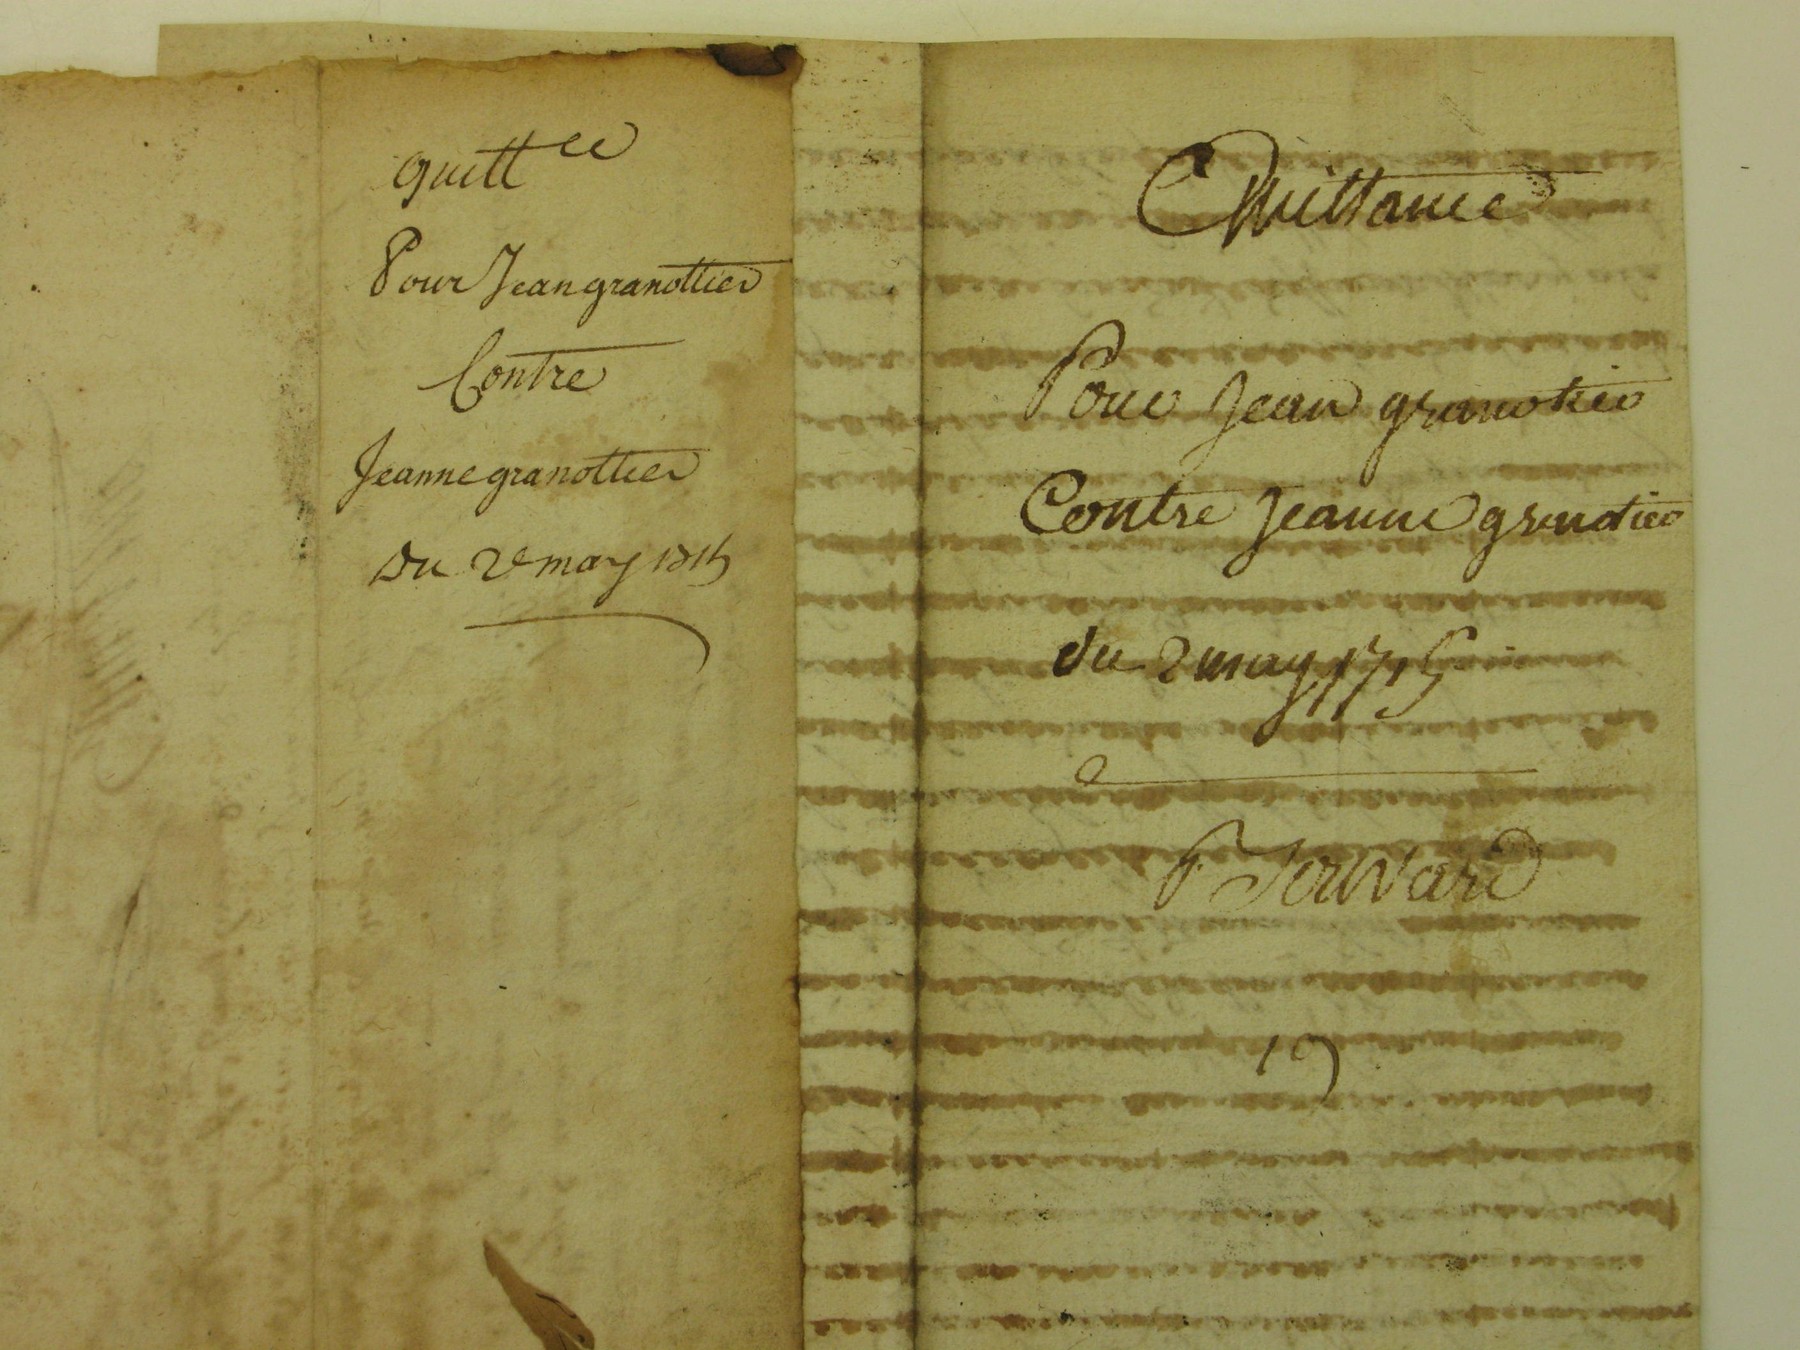 quitt.ce
Pour Jean granottier
Contre
Jeanne granottier
Du 2e may 1715
Quittance
Pour Jean granotier
Contre Jeanne granotier
du 2 may 1715
19